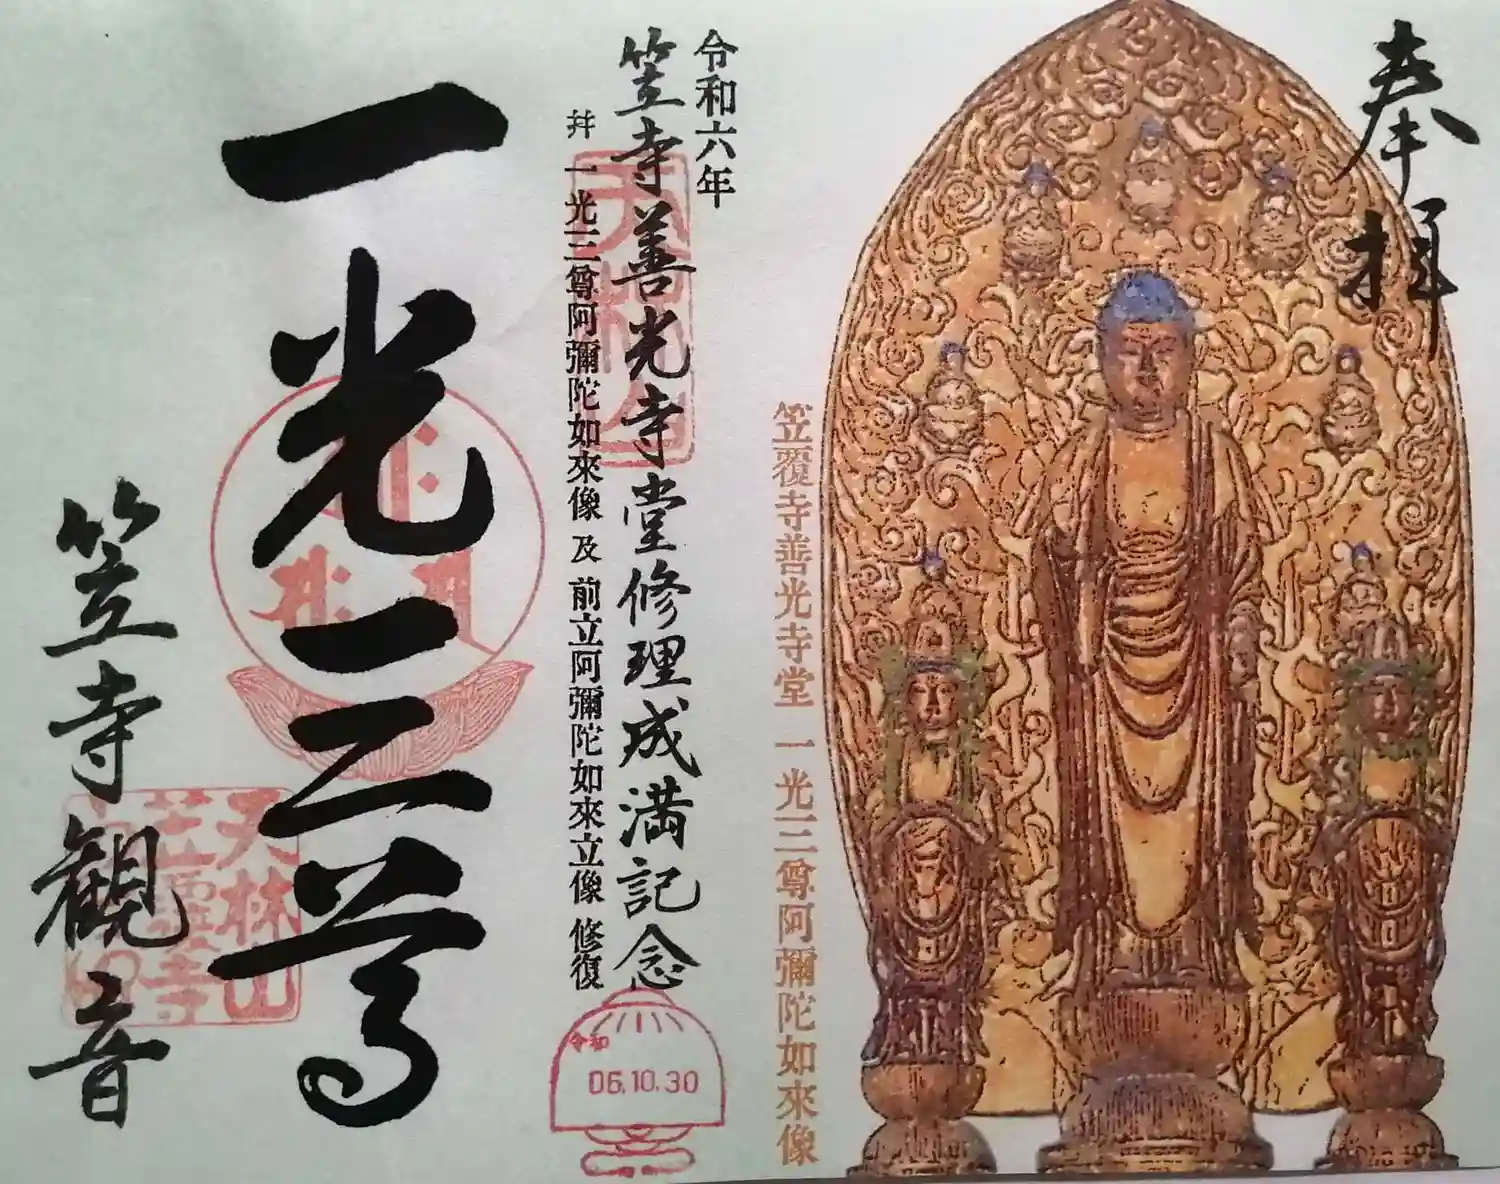 奉拝
笠覆寺善光寺堂 一光三尊阿彌陀如來像
令和六年
笠寺善光寺堂修理成満記念
并 一光三尊阿彌陀如來像 及 前立阿彌陀如來立像 修復
令和
06.10.30
一光三尊
天林山
笠寺觀音